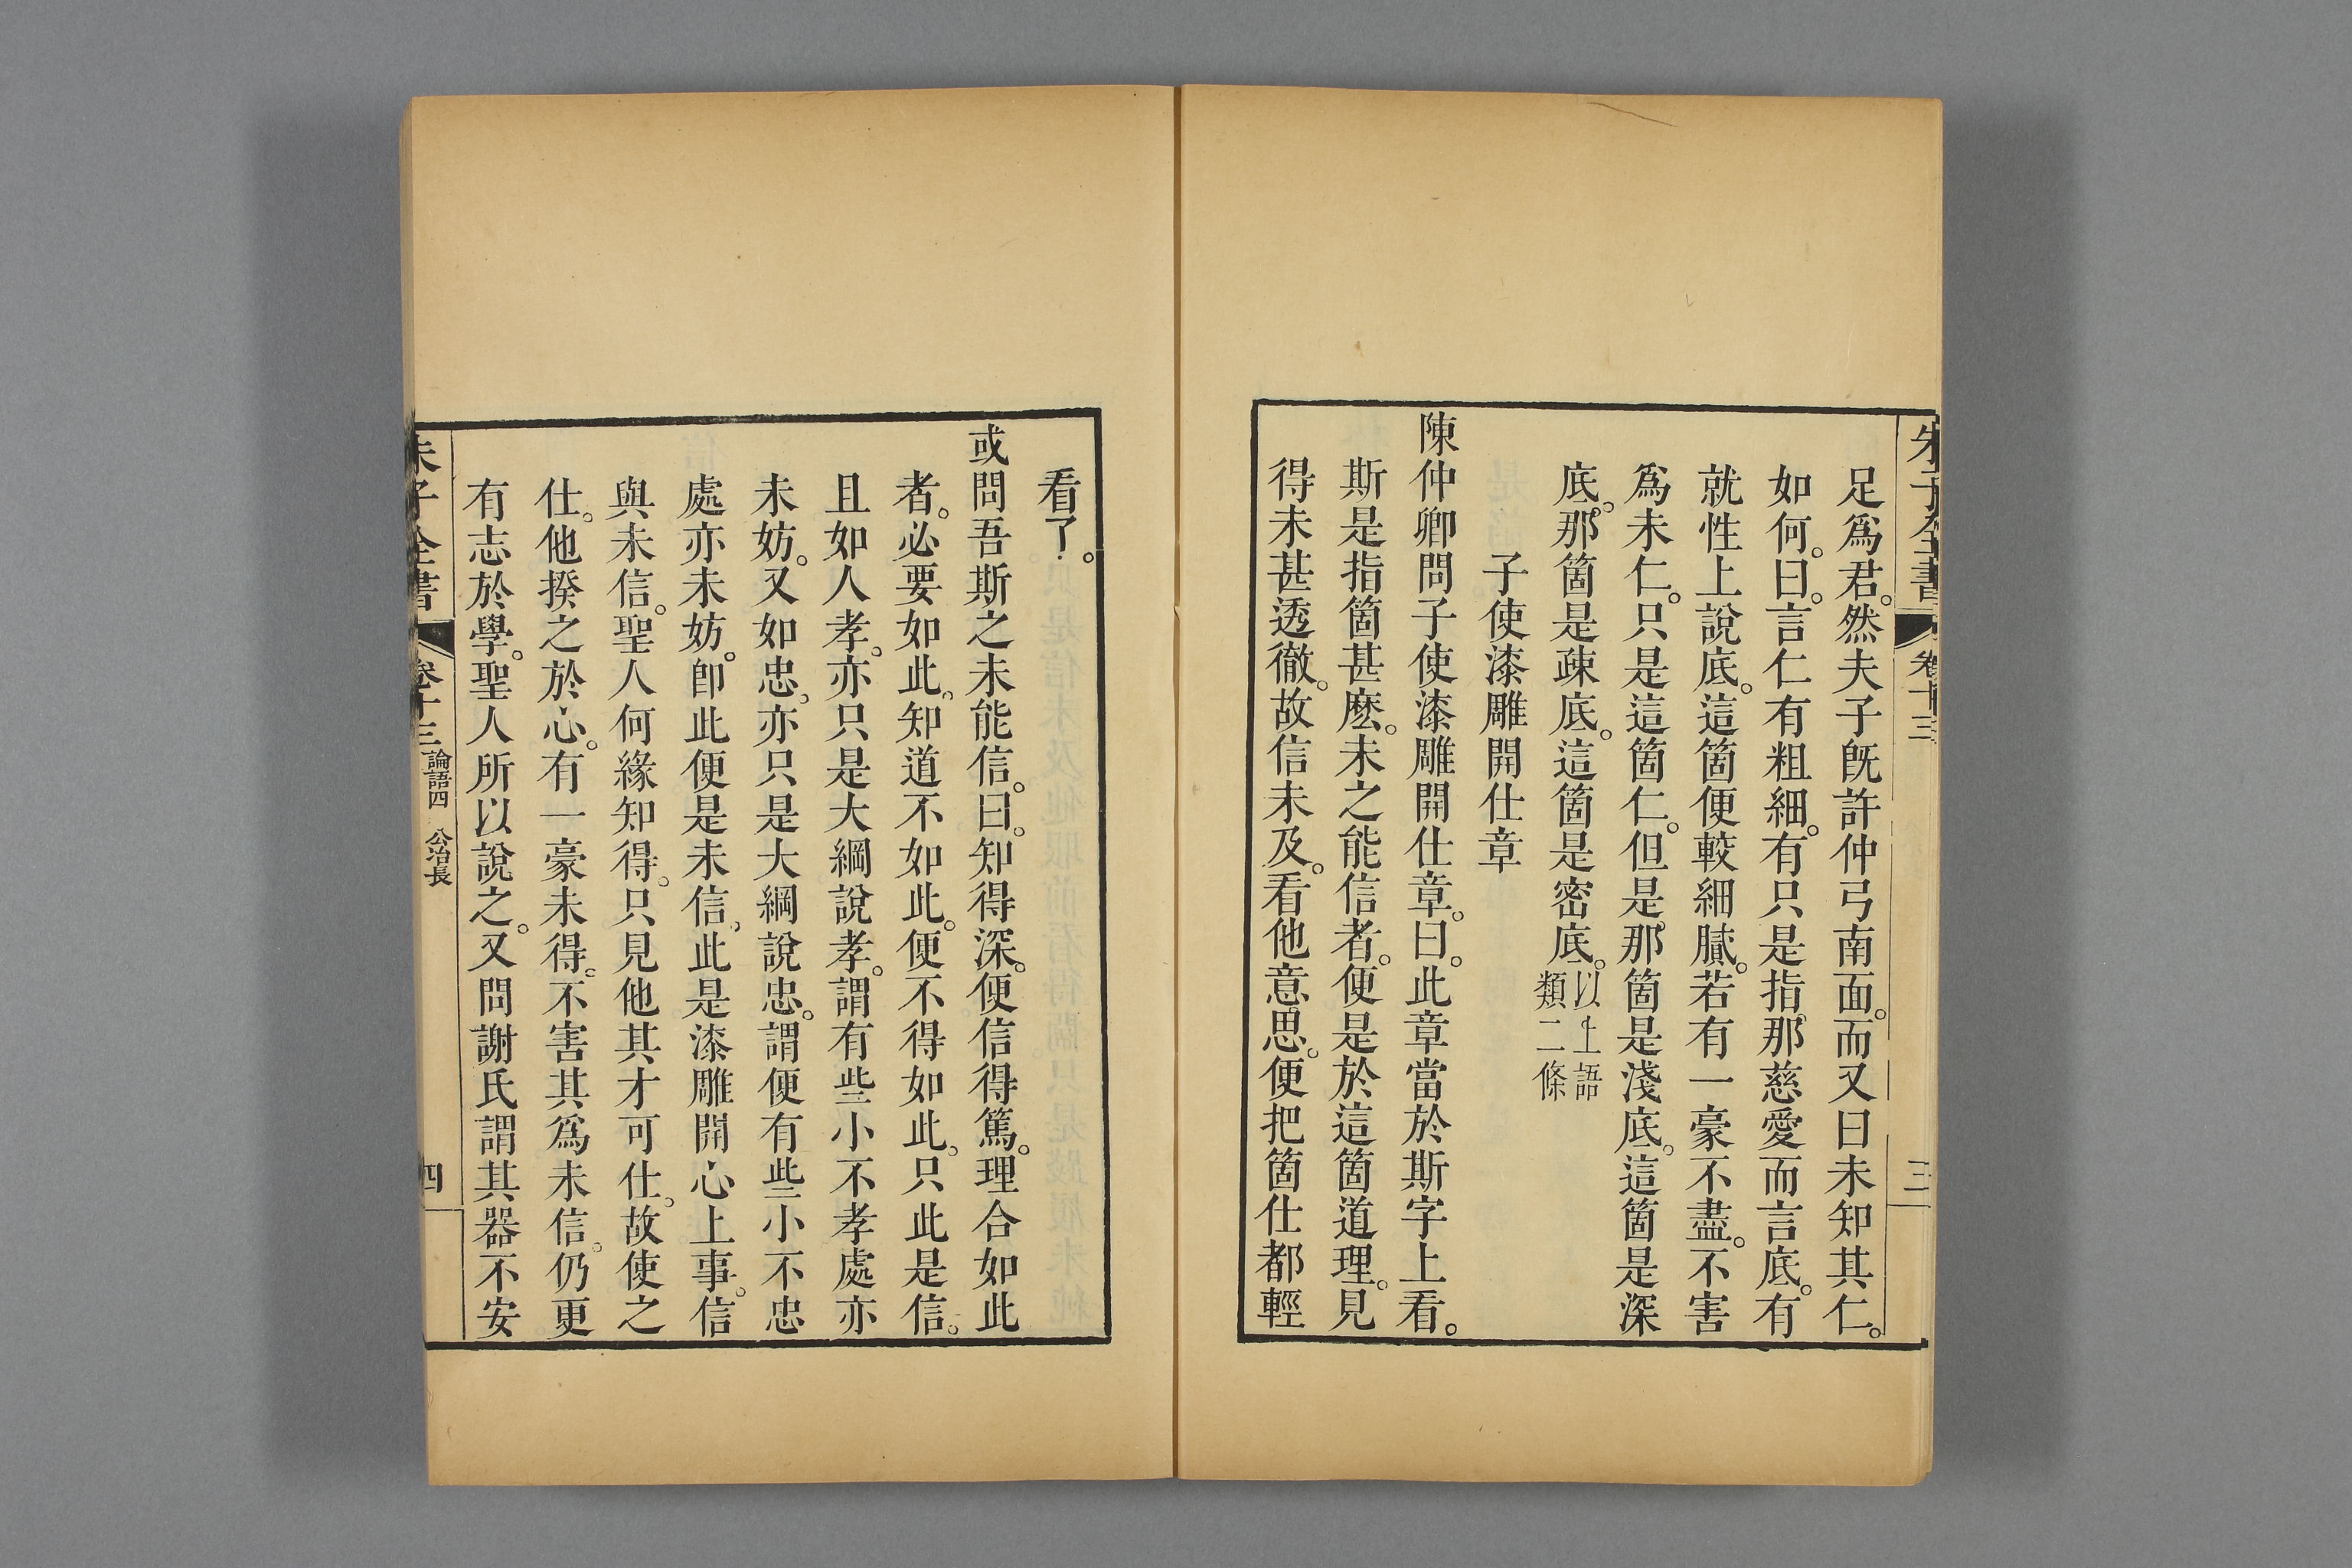 朱子全書 卷十三 三
足爲君。然夫子旣許仲弓南面。而又曰未知其仁。
如何。曰。言仁有粗細。有只是指那慈愛而言底。有
就性上說底。這箇便較細膩。若有一豪不盡。不害
爲未仁。只是這箇仁。但是那箇是淺底。這箇是深
底。那箇是疎底。這箇是密底。以上語類二條
子使漆雕開仕章
陳仲卿問子使漆雕開仕章。曰。此章當於斯字上看。
斯是指箇甚麽。未之能信者。便是於這箇道理。見
得未甚透徹。故信未及。看他意思。便把箇仕都輕
看了。
或問吾斯之未能信。曰。知得深。便信得篤。理合如此
者。必要如此。知道不如此。便不得如此。只此是信。
且如人孝。亦只是大綱說孝。謂有些小不孝處亦
未妨。又如忠。亦只是大綱說忠。謂便有些小不忠
處亦未妨。卽此便是未信。此是漆雕開心上事。信
與未信。聖人何緣知得。只見他其才可仕。故使之
仕。他揆之於心。有一豪未得。不害其爲未信。仍更
有志於學。聖人所以說之。又問謝氏謂其器不安
朱子全書 卷十三 論語四 公冶長 四